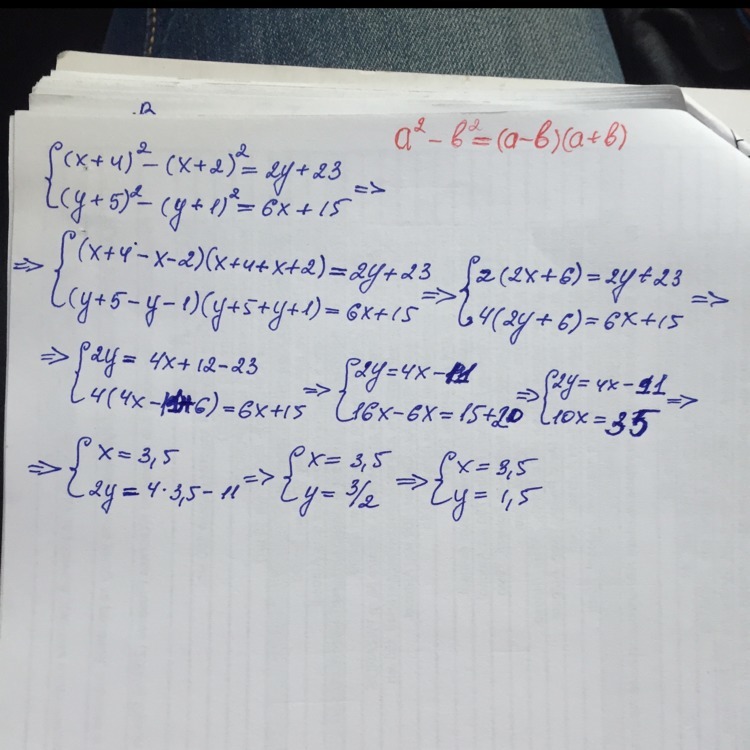 a² - b² = (a-b)(a+b)
{(x+4)² - (x+2)² = 2y+23
{(y+5)² - (y+1)² = 6x+15 =>
=> {(x+4-x-2)(x+4+x+2) = 2y+23
{(y+5-y-1)(y+5+y+1) = 6x+15 => {2(2x+6) = 2y+23
{4(2y+6) = 6x+15 =>
=> {2y = 4x+12-23
{4(4x-11+6) = 6x+15 => {2y = 4x-11
{16x-6x = 15+20 => {2y = 4x-11
{10x = 35 =>
=> {x = 3,5
{2y = 4·3,5-11 => {x = 3,5
{y = 3/2 => {x = 3,5
{y = 1,5